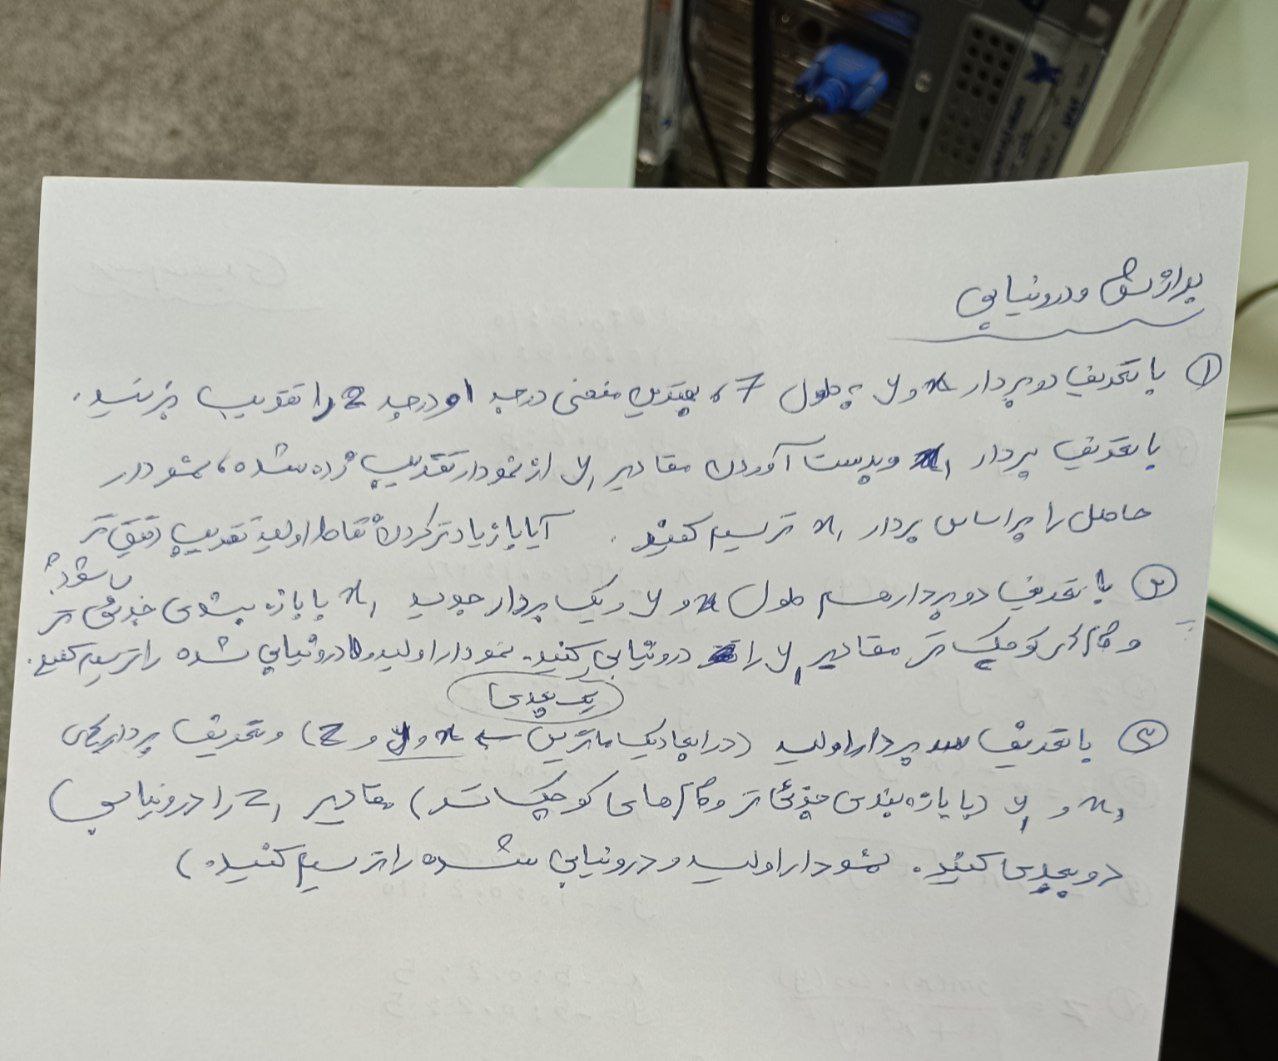 برازش و درونیابی
① با تعریف دو بردار x و y به طول 7، بهترین منحنی درجه 1 و درجه 2 را تقریب بزنید.
با تعریف بردار x₁ و بدست آوردن مقادیر y₁ از نمودار تقریب زده شده، نمودار
حاصل را براساس بردار x₁ ترسیم کنید. آیا با زیادتر کردن نقاط اولیه تقریب دقیق تر
می شود؟
② با تعریف دو بردار هم طول x و y و یک بردار جدید x₁ با بازه بندی جزئی تر
و گام های کوچک تر مقادیر y₁ را درونیابی کنید. نمودار اولیه و درونیابی شده را ترسیم کنید.
یک بعدی
③ با تعریف سه بردار اولیه (در اینجا یک ماتریس ← x و y و z) و تعریف بردارهای
x₁ و y₁ (با بازه بندی جزئی تر و گام های کوچک تر) مقادیر z₁ را درونیابی
دو بعدی کنید. نمودار اولیه و درونیابی شده را ترسیم کنید.)